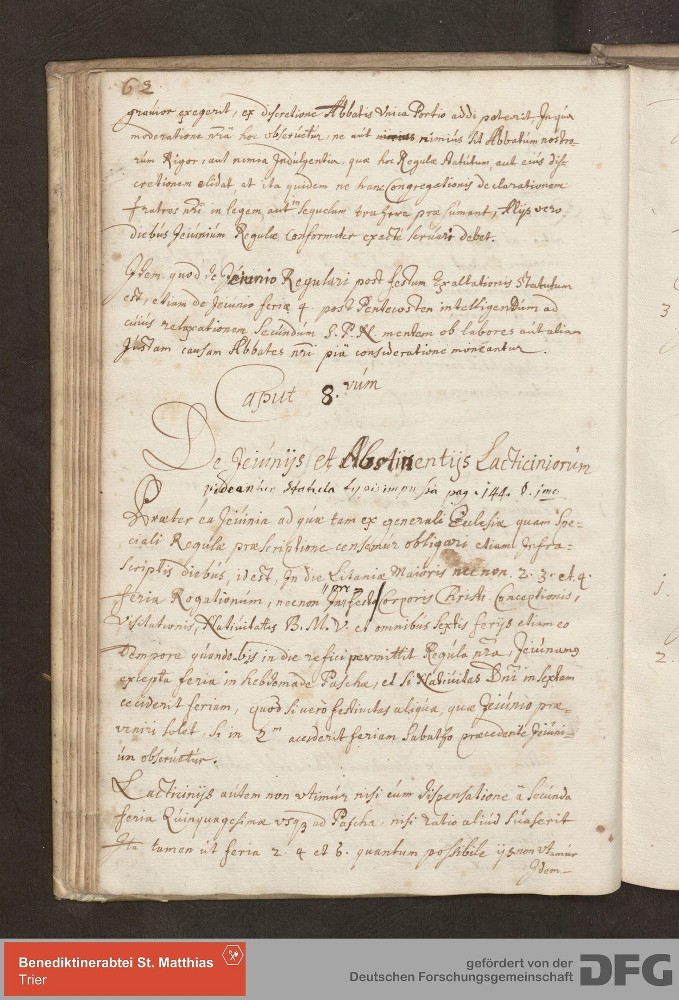 62
gravior exegerit, ex discretione Abbatis vnica Portio addi poterit, In qua
moderatione nrã hoc observetúr, ne aút nimiús sit Abbatúm nostro-
rúm Rigor, aút nimia Indúlgentia, quæ hoc Regulæ Statútum, aut eiús dis-
cretionem elidat, et ita quidem ne hanc Congregationis declarationem
fratres nrĩ in legem, aút in sequelam trahere præsumant, Alÿs vero
diebús Jeiúniúm Regulæ Conformiter exacte servari debet.
Item quod de Jeiunio Regulari post festum Exaltationis Statutum
est, etiam de Jeiúnio feriæ 4. post Pentecosten intelligendúm ad
cuiús relaxationem secundum S. P. N. mentem ob labores aút aliam
Jústam causam Abbates nrĩ piã consideratione moneantur.
Caput 8.vúm
De Jeiúnijs et Abstinentijs Lacticiniorúm
videantur statuta typis impressa pag. 144. §. imo
Præter ea Jeiúnia ad quæ tam ex generali Ecclesiæ quam Spe-
ciali Regulæ præscriptione censemúr obligari etiam Infra-
scriptis diebús, idest, In die Litaniæ Maioris necnon 2. 3. et 4.
feria Rogationúm, necnon In pro festo Corporis Christi Conceptionis,
Visitationis, Nativitatis B. M. V. et omnibús sextis ferÿs etiam eo
Tempore quando bis in die refici permittit Regula nrã, Jeiúnamus
excepta feria in hebdomade Paschæ, et si Nativitas Dnĩ in sextam
ceciderit feriam, quod si vero festivitas aliqua, quæ Jeiúnio præ-
veniri solet, si in 2m acciderit feriam Sabatho præcedente Jeiúni-
úm observetúr.
Lacticinijs autem non vtimúr nisi cúm dispensatione ã secúnda
feria Qúinquagesimæ vsq3 ad Pascha, nisi ratio aliud súaserit
Ita tamen út feria 2. 4 et 6. quantum possibile ijs non vtamúr
Idem-
3
1.
2.
Benediktinerabtei St. Matthias
Trier
gefördert von der
Deutschen Forschungsgemeinschaft
DFG